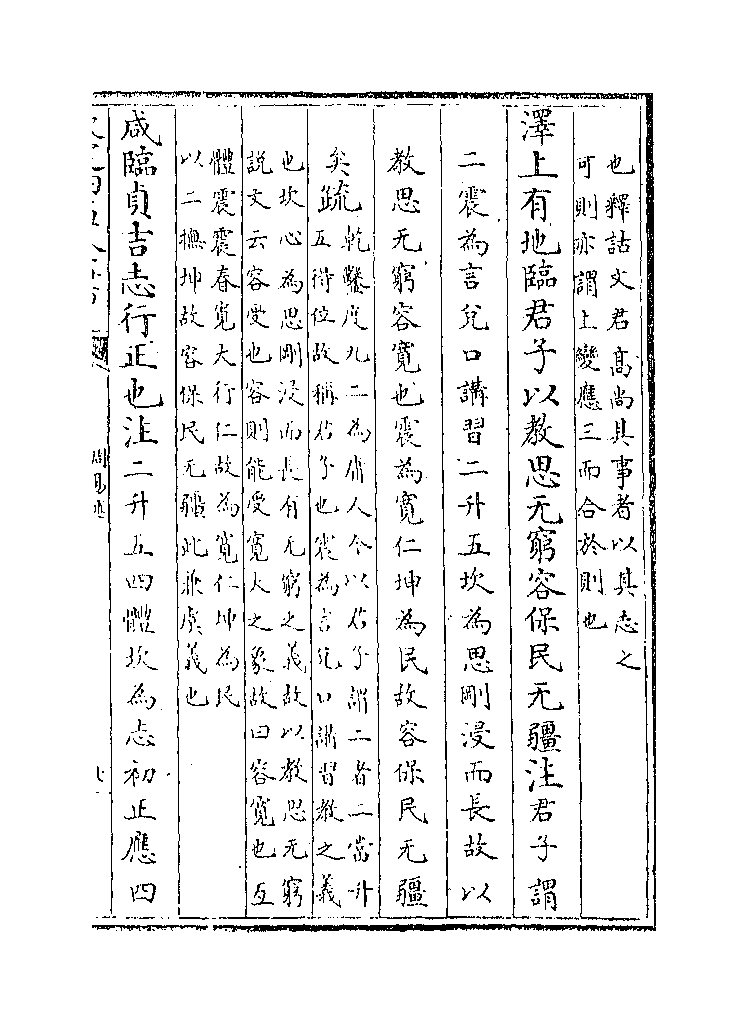 也釋詁文君高尚其事者以其志之
可則亦謂上變應三而合於則也
澤上有地臨君子以教思无窮容保民无疆注君子謂
二震為言兌口講習二升五坎為思剛浸而長故以
教思无窮容寛也震為寛仁坤為民故容保民无疆
矣疏乾鑿度九二為庸人今以君子謂二者二當升
五得位故稱君子也震為言兌口講習教之義
也坎心為思剛浸而長有无窮之義故以教思无窮
説文云容受也容則能受寛大之象故曰容寛也互
體震震春寛大行仁故為寛仁坤為民
以二撫坤故容保民无疆此兼虞義也
咸臨貞吉志行正也注二升五四體坎為志初正應四
周易述